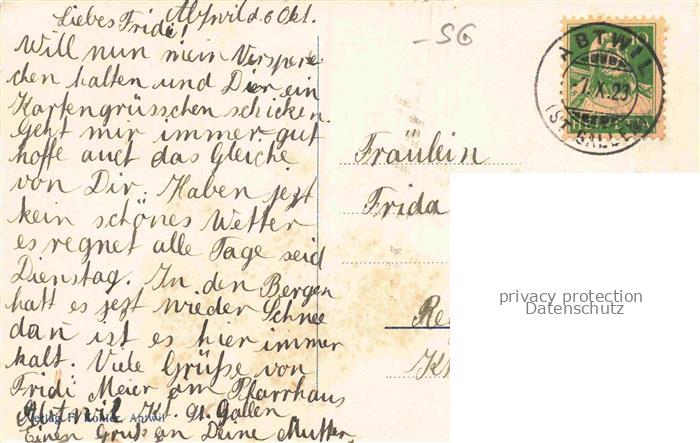 Abtwil d. 6 Okt.
Liebes Fridi!
Will nun mein Verspre
chen halten und Dir ein
Kartengrüsschen schicken.
Geht mir immer gut
hoffe auch das Gleiche
von Dir. Haben jezt
kein schönes Wetter
es regnet alle Tage seid
Dienstag. In den Bergen
hatt es jezt wieder Schnee
dan ist es hier immer
kalt. Viele Grüße von
Fridi Meier im Pfarrhaus
Abtwil Kt. St. Gallen
Einen Gruß an Deine Mutter.
Verlag F. Kohler, Abtwil
-SG
ABTWIL
7.X.23
(ST. GALLEN)
Fräulein
Frida
Re
K
privacy protection
Datenschutz